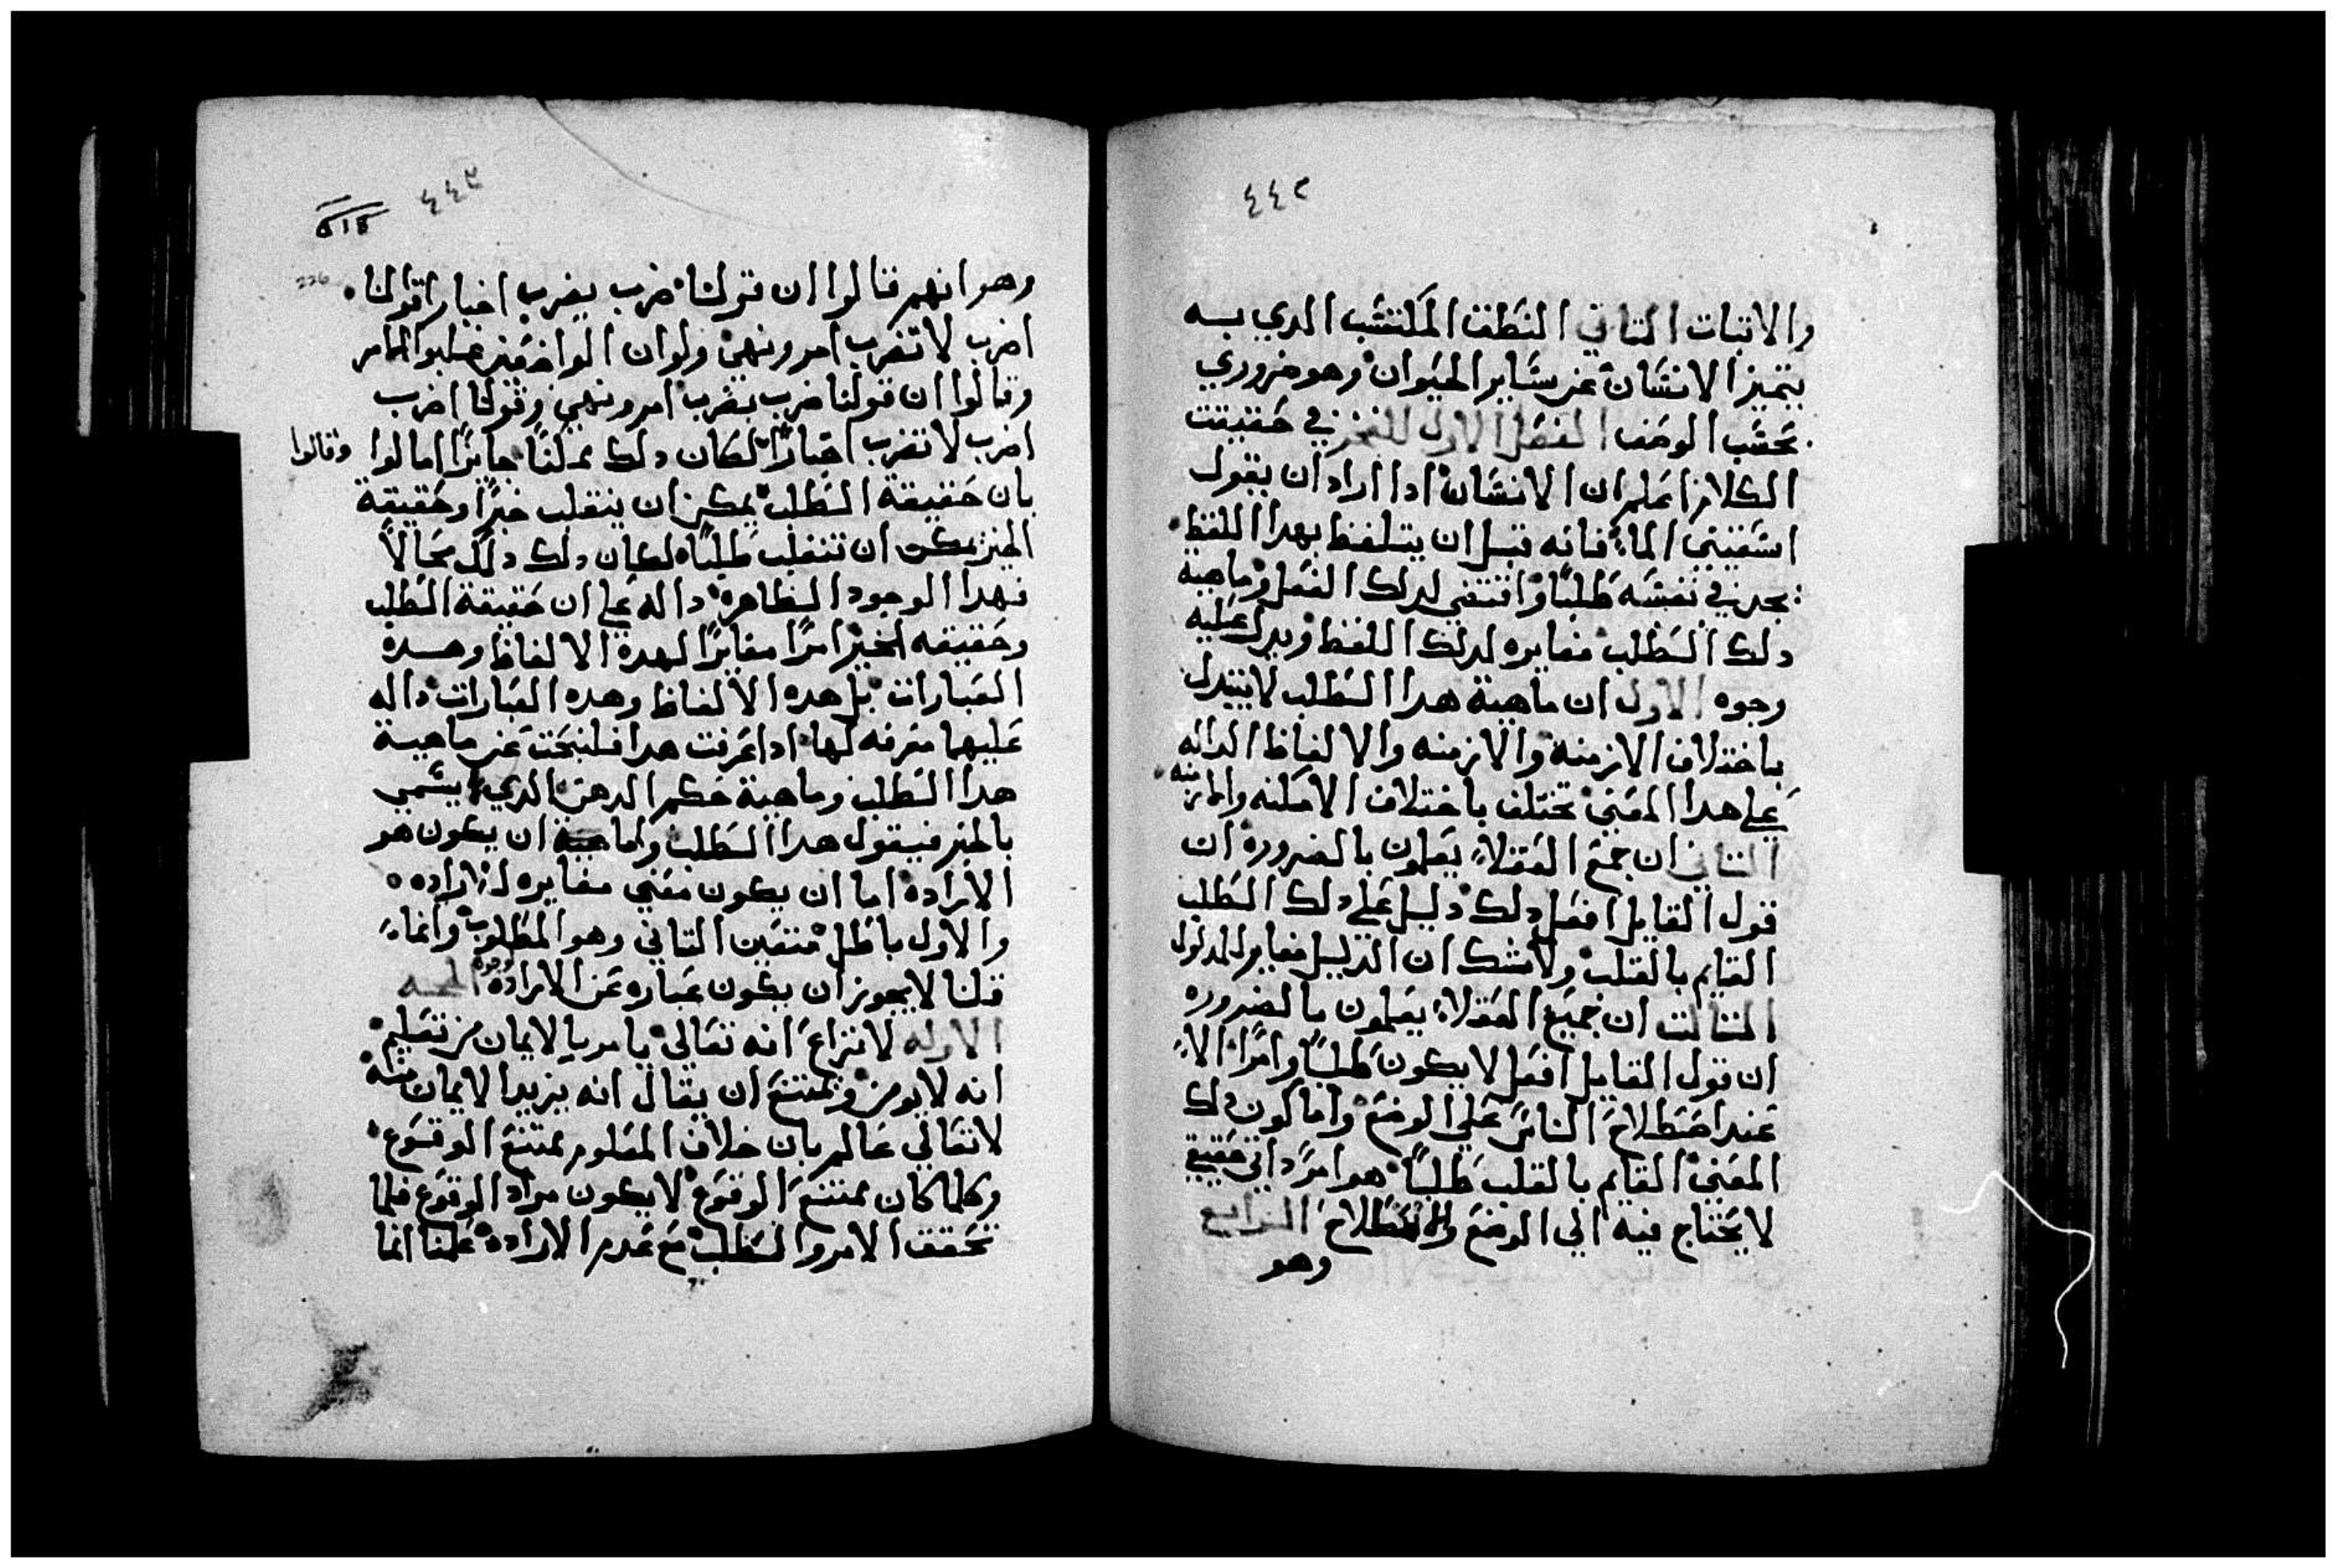 ٤٤٢
والاتبات التاني النطق المكتسب الدي به
يتميز الانسان عن ساير الحيوان وهو ضروري
بحسب الوصف الفصل الاول للفخر في حقيقت
الكلام اعلم ان الانسان ادا اراد ان يقول
اسقيني الماء فانه قبل ان يتلفظ بهدا اللفظ
يجد في نفسه طلبا واقتضي لدلك الفعل وماهية
دلك الطلب مغايره لدلك اللفظ ويدل عليه
وجوه الاول ان ماهية هدا الطلب لا يتبدل
باختلاف الازمنة والازمنه والالفاظ الداله
علي هدا المعني تختلف باختلاف الامكنه والازمنه
التاني ان جمع العقلاء يعلمون بالضروره ان
قول القايل افعل دلك دليل علي دلك الطلب
القايم بالقلب ولا شك ان الدليل مغاير للمدلول
التالت ان جميع العقلاء يعلمون بالضروره
ان قول القايل افعل لا يكون طلبا وامرا الاء
عند اصطلاح الناس علي الوضع واما كون دلك
المعني القايم بالقلب طلبا هو امر داتي حقيقي
لا يحتاج فيه الي الوضع والاصطلاح الرابع
وهو
٤٤٣
226
وهو انهم قالوا ان قولنا ضرب يضرب اخبارا قولنا
اضرب لا تضرب امر ونهي ولو ان الواضعين قلبوا الامر
وقالوا ان قولنا ضرب يضرب امر ونهي وقولنا اضرب
اضرب لا تضرب اخبارا لكان دلك ممكنا جايزا اما لوا وقالوا
بان حقيقة الطلب يمكن ان ينقلب خبرا وحقيقة
الخبر يمكن ان تنقلب طلبا لكان دلك دلك محالا
فهدا الوجود الظاهره داله علي ان حقيقة الطلب
وحقيقه الخبر امرا مغايرا لهده الالفاظ وهده
العبارات بل هده الالفاظ وهده العبارات داله
عليهما معرفه لها ادا عرفت هدا فلنبحت عن ماهية
هدا الطلب وماهية حكم الدهن الدي يسمي
بالخبر فيقول هدا الطلب واما ان يكون هو
الاراده اما ان يكون معني مغايره للاراده
والاول باطل فتعين التاني وهو المطلوب وانماء
قلنا لا يجوز ان يكون عباره عن الاراده لوجوه الحجه
الاوله لا نزاع انه تعالي يامر بالايمان من تعليم
انه لا يومن ويمتنع ان يقال انه يريد الايمان منه
لا تعالي عالم بان خلاف المعلوم ممتنع الوقوع
وكلما كان ممتنع الوقوع لا يكون مراد الوقوع فلما
تحقق الامر والطلب مع عدم الاراده علمنا انما